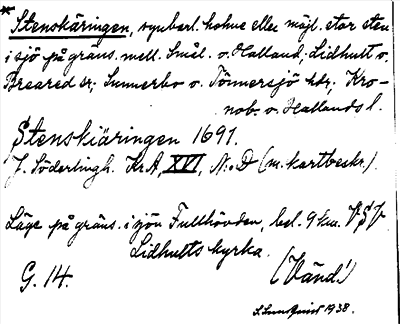 * Stenskäringen, synbarl. holme eller möjl. stor sten
i sjö på gräns. mell. Smål. o. Halland; Lidhult o.
Breared sr; Sunnerbo o. Tönnersjö hdr; Kro-
nob. o. Hallands l.
Stenskiäringen 1691.
J. Söderlingh. KrA, XVI, N:o D (m. kartbeskr.).
Läge på gräns. i sjön Fullhövden, bel. 9 km. VSV
Lidhults kyrka.
G. 14.
(Vänd!)
1938.